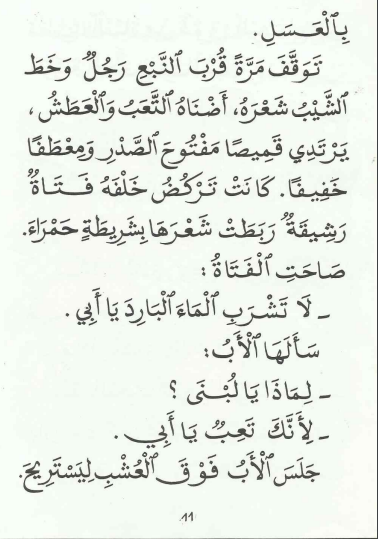 بِٱلْعَسَلِ.
تَوَقَّفَ مَرَّةً قُرْبَ ٱلنَّبْعِ رَجُلٌ وَخَطَ
ٱلشَّيْبُ شَعْرَهُ، أَضْنَاهُ ٱلتَّعَبُ وَٱلْعَطَشُ،
يَرْتَدِي قَمِيصًا مَفْتُوحَ ٱلصَّدْرِ وَمِعْطَفًا
خَفِيفًا. كَانَتْ تَرْكُضُ خَلْفَهُ فَتَاةٌ
رَشِيقَةٌ رَبَطَتْ شَعْرَهَا بِشَرِيطَةٍ حَمْرَاءَ.
صَاحَتِ ٱلْفَتَاةُ :
- لَا تَشْرَبِ ٱلْمَاءَ ٱلْبَارِدَ يَا أَبِي .
سَأَلَهَا ٱلْأَبُ:
- لِمَاذَا يَا لُبْنَى ؟
- لِأَنَّكَ تَعِبٌ يَا أَبِي .
جَلَسَ ٱلْأَبُ فَوْقَ ٱلْعُشْبِ لِيَسْتَرِيحَ.
11